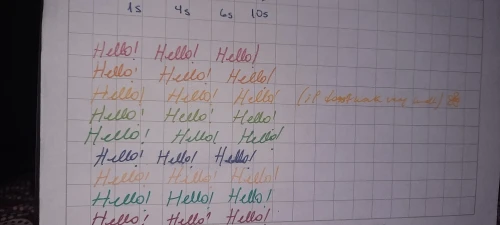 1s 4s 6s 10s
Hello! Hello! Hello!
Hello! Hello! Hello!
Hello! Hello! Hello!
Hello! Hello! Hello!
Hello! Hello! Hello!
Hello! Hello! Hello!
Hello! Hello! Hello!
Hello! Hello! Hello!
Hello! Hello! Hello!